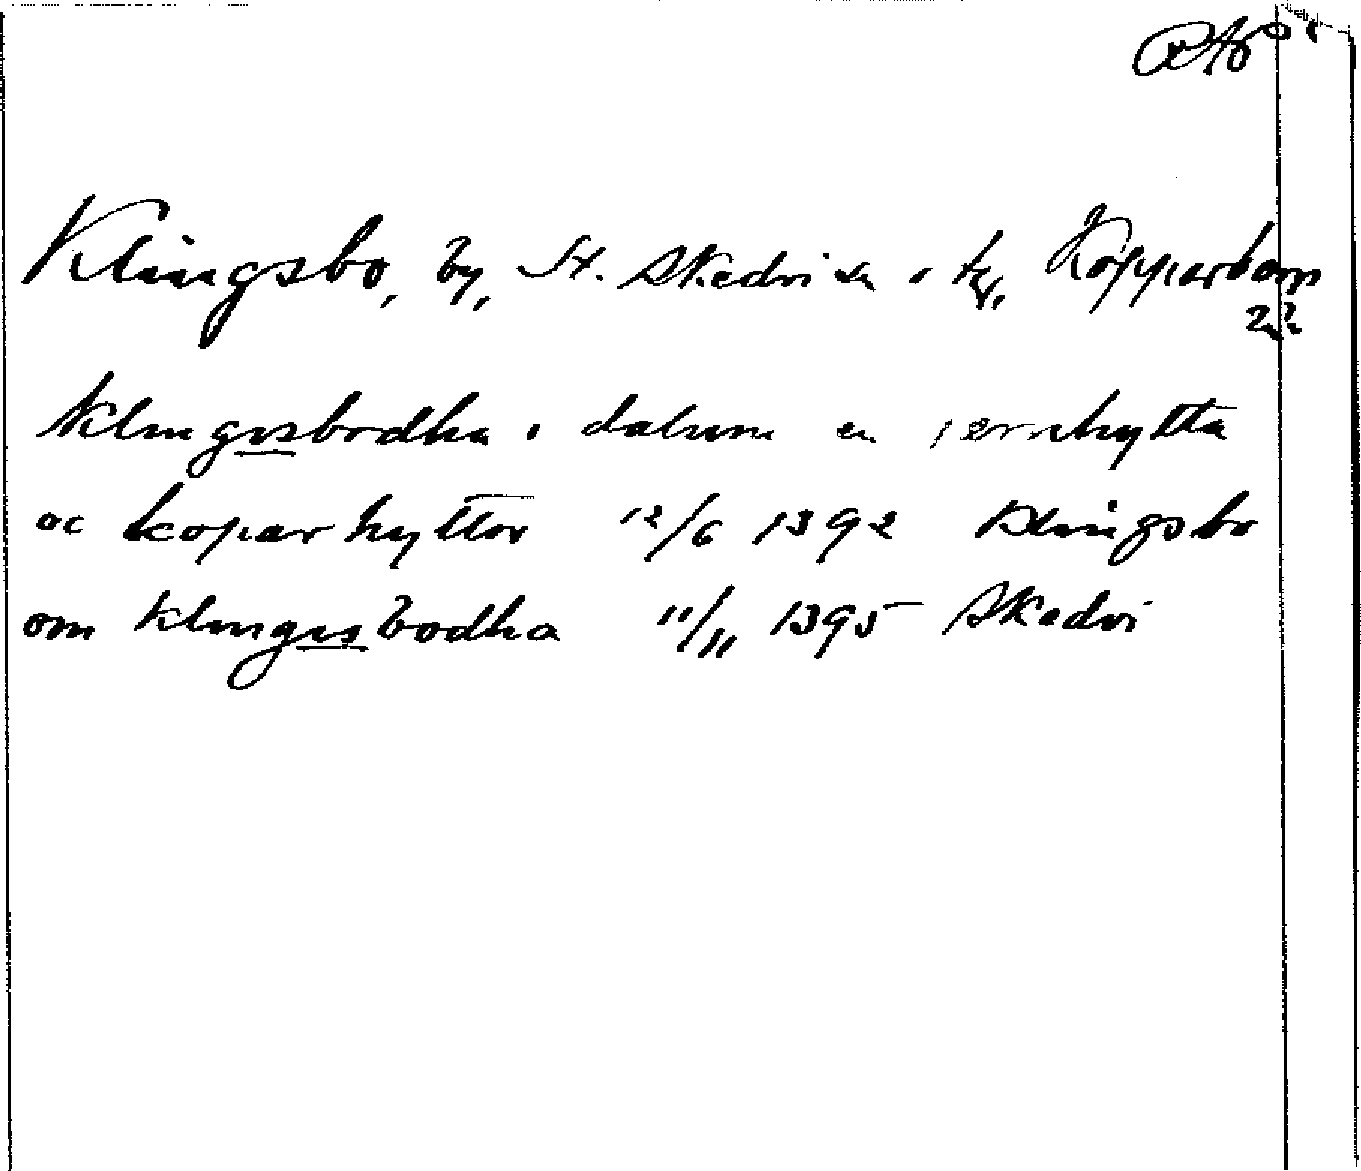 RAp
Klingsbo, by, St. Skedvi sn o tg, Kopparbergs
Klingisbodha i dalum en jernhytta
oc koparhyttor 12/6 1392 Klingsbo
om Klingisbodha 11/11 1395 Skedvi